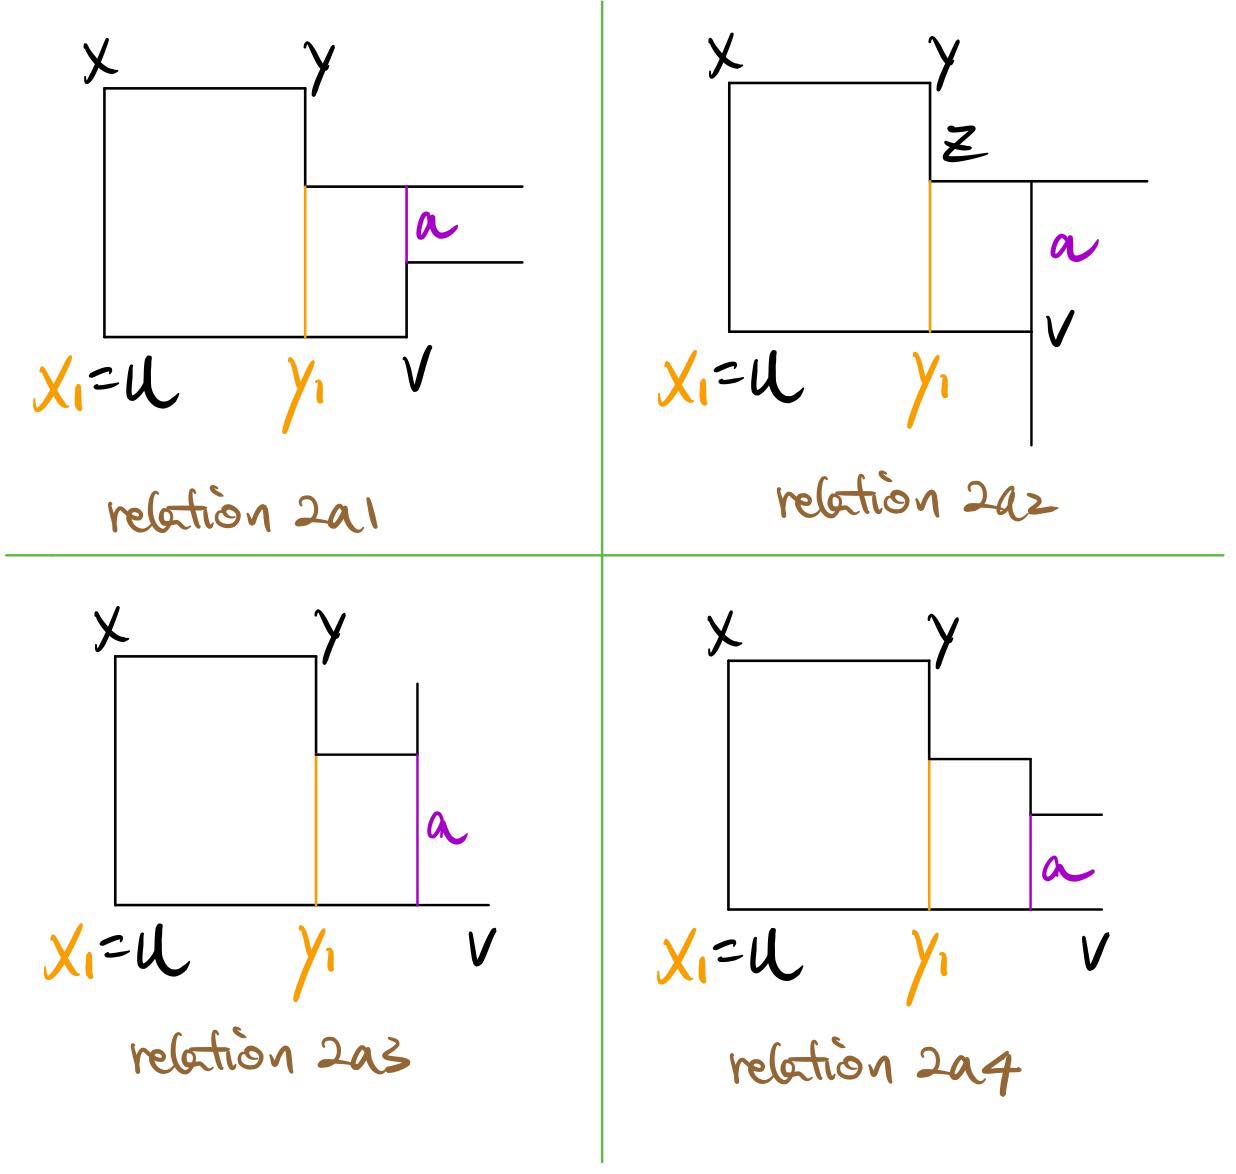 x y
a
x₁=u y₁ v
relation 2a1
x y
z
a
v
x₁=u y₁
relation 2a2
x y
a
x₁=u y₁ v
relation 2a3
x y
a
x₁=u y₁ v
relation 2a4